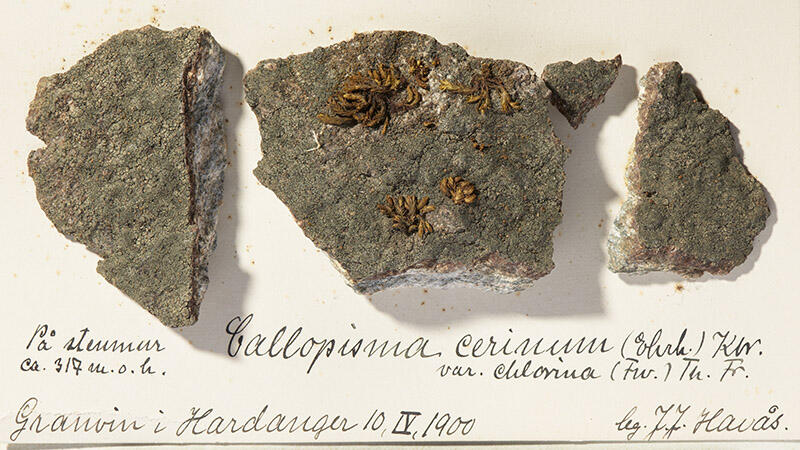 På stenmur
ca. 317 m.o.h.
Callopisma cerinum (Ehrh.) Kbr.
var. chlorina (Fw.) Th. Fr.
Granvin i Hardanger 10, IV, 1900
leg. J.J. Havås.